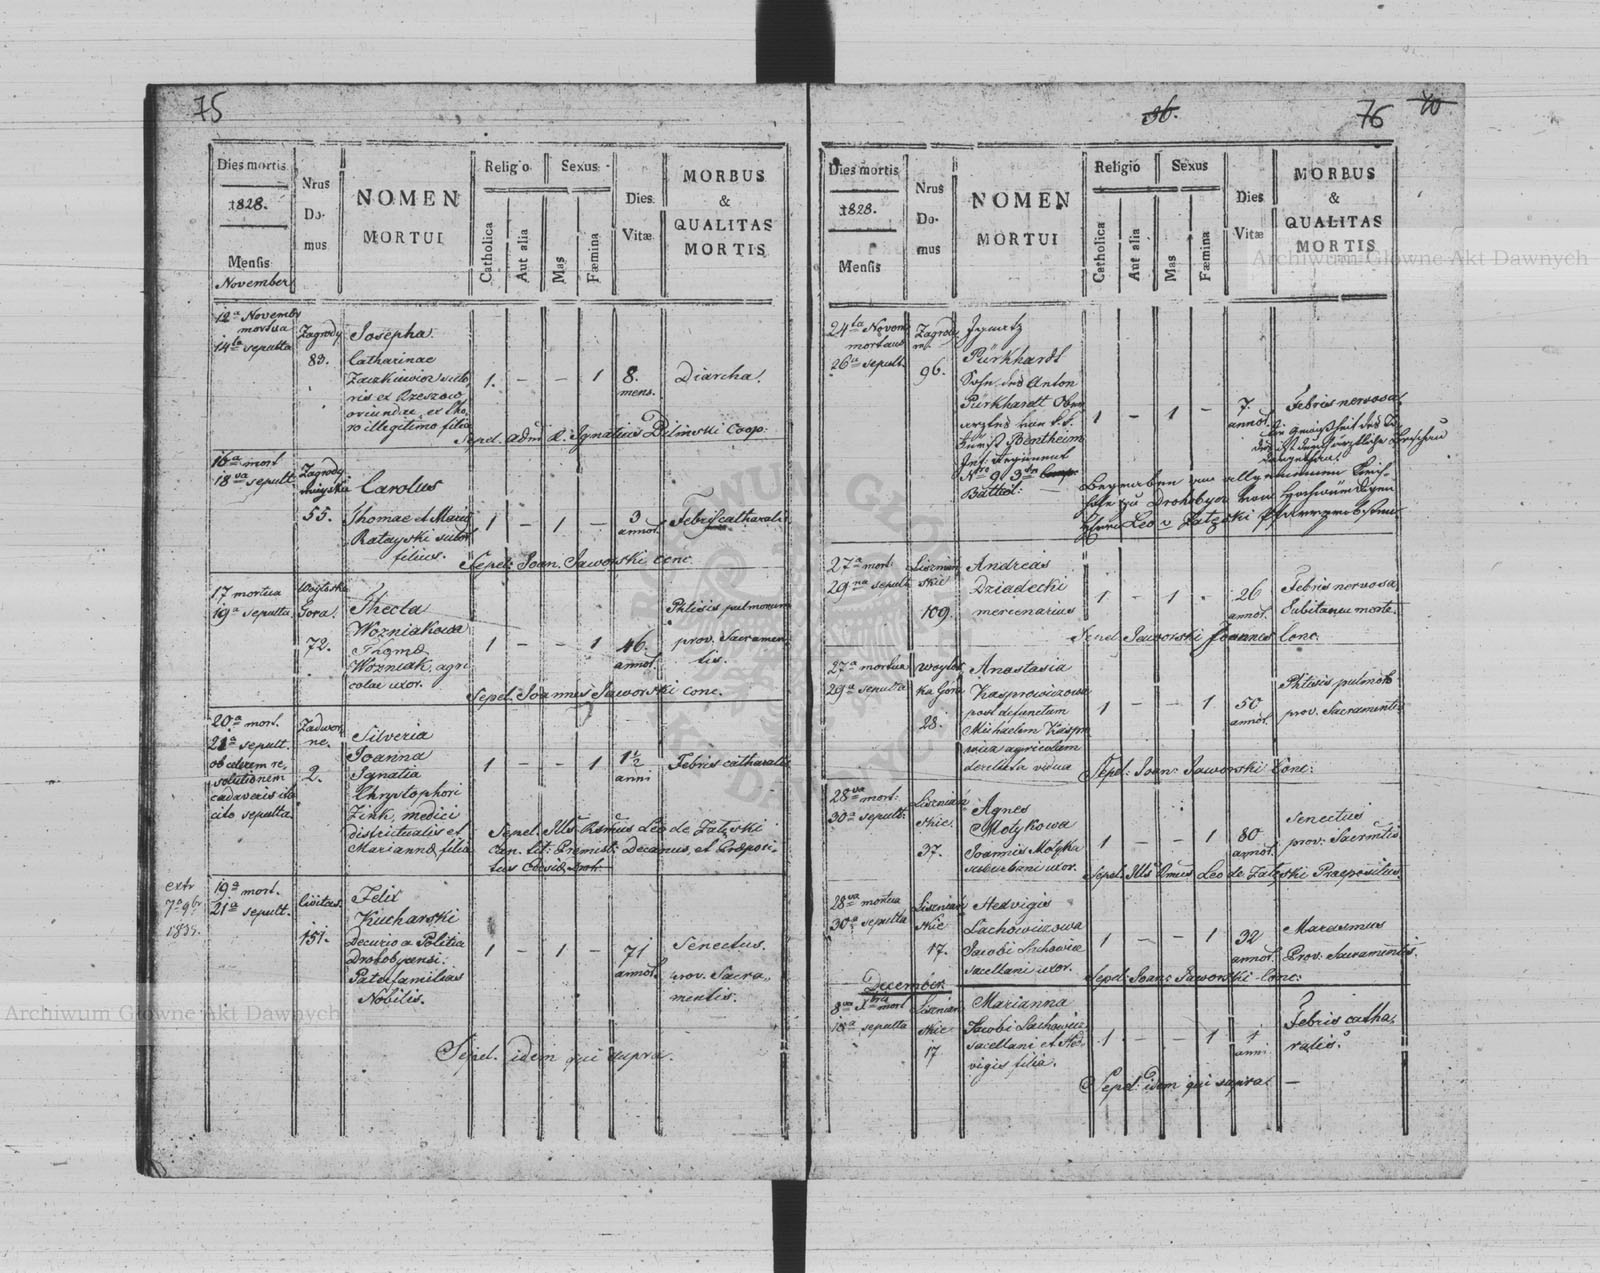 75
Dies mortis
1828.
Mensis
November
Nrus
Do-
mus
NOMEN
MORTUI
Religio
Sexus
Catholica
Aut alia
Mas
Fæmina
Dies
Vitæ
MORBUS
&
QUALITAS
MORTIS
12a Novembr
mortua
14ta sepulta
Zagrody
83.
Josepha
Catharinae
Zaczkiewicz suto
ris ex Rzeszow
oriundae, ex tho
ro illegitimo filia
1. – – 1
8.
mens.
Diarcha.
Sepel. Adm R. Ignatius Bilinski Coop:
16a mort
18va sepult
Zagrody
miejskie
55.
Carolus
Thomae et Maria
Ratayski sutor
filius.
1 – 1 –
3
annor.
Febris catharalis
Sepel: Joan. Jaworski conc.
17 mortua
19a sepulta
Woytoska
Gora.
72.
Thecla
Wozniakowa
Thoma
Wozniak agri
colae uxor.
1 – – 1
46.
annor.
Phtisis pulmonum
prov. Sacramen
tis.
Sepel. Joannes Jaworski conc.
20a mort.
21a sepult.
ob celerem re,
solutionem
cadaveris ita
cito sepulta.
Zadwor
ne.
2.
Silveria
Joanna
Ignatia
Chrystophori
Zink, medici
districtualis et
Marianna filia
1 – – 1
1½
anni
Febris catharalis
Sepel. Ills Rsmus Leo de Załęski
Can. tit. Premisl: Decanus, et Præposi-
tus
extr
7a 9br
1835.
19a mort.
21a sepult.
Civitas.
151.
Felix
Kucharski
Decurio a Politia
Drohobycensi.
Paterfamilias
Nobilis.
1 – 1 –
71
annor.
Senectus.
prov. Sacra,
mentis.
Sepel. idem qui supra.
36.
76
70
Dies mortis
1828.
Mensis
Nrus
Do-
mus
NOMEN
MORTUI
Religio
Sexus
Catholica
Aut alia
Mas
Fæmina
Dies
Vitæ
MORBUS
&
QUALITAS
MORTIS
24ta Novem
mortuus
26a sepult.
Zagrody
m.
96.
Ignatz
Pürkhardt
Sohn des Anton
Pürkhardt Ober
arztes vom k. k.
Fürst Bentheim
Inf: Regiment
Nro 9 3ten Comp.
Batlol: –
1 – 1 –
7.
annor.
Febris nervosa,
Begraben am allgemeinen Fried-
hofe zu Drohobycz vom Hochwürdigen
Herrn Leo v Załęski Pfarrprobsten
27a mort.
29na sepult.
Liszniań
skie
109.
Andreas
Dziadecki
mercenarius
1 – 1 –
26
annor.
Febris nervosa,
Subitanea morte.
Sepel Jaworski Joannes Conc.
27a mortua
29a sepulta
Woytos
ka Gora
28.
Anastasia
Kasprowiczowa
post defunctum
Michaelem Kaspro
wicz agricolam
derelicta vidua
1 – – 1
50
annor.
Phtisis pulmon
prov. Sacramentis
Sepel: Joan: Jaworski Conc:
28va mort:
30a sepult:
Liszniań
skie.
37.
Agnes
Motykowa
Joannis Motyka
suburbani uxor.
1 – – 1
80
annor.
Senectus
prov: Sacrmtis
Sepel: Ills Rmus Leo de Załęski Praepositus
28va mortua
30a sepulta
Lisznian
skie
17.
Hedvigis
Lachowiczowa
Jacobi Lachowicz
sacellani uxor.
1 – – 1
32
annor.
Marasmus
Prov. Sacramentis.
Sepel: Joan: Jaworski Conc:
December.
8va Xbris mort
10a sepulta
Lisznian
skie
17
Marianna
Jacobi Lachowicz
sacellani et Hed
vigis filia.
1 – – 1
1
anni
Febris catha,
ralis.
Sepel: idem qui supra –
Archiwum Główne Akt Dawnych
Archiwum Główne Akt Dawnych